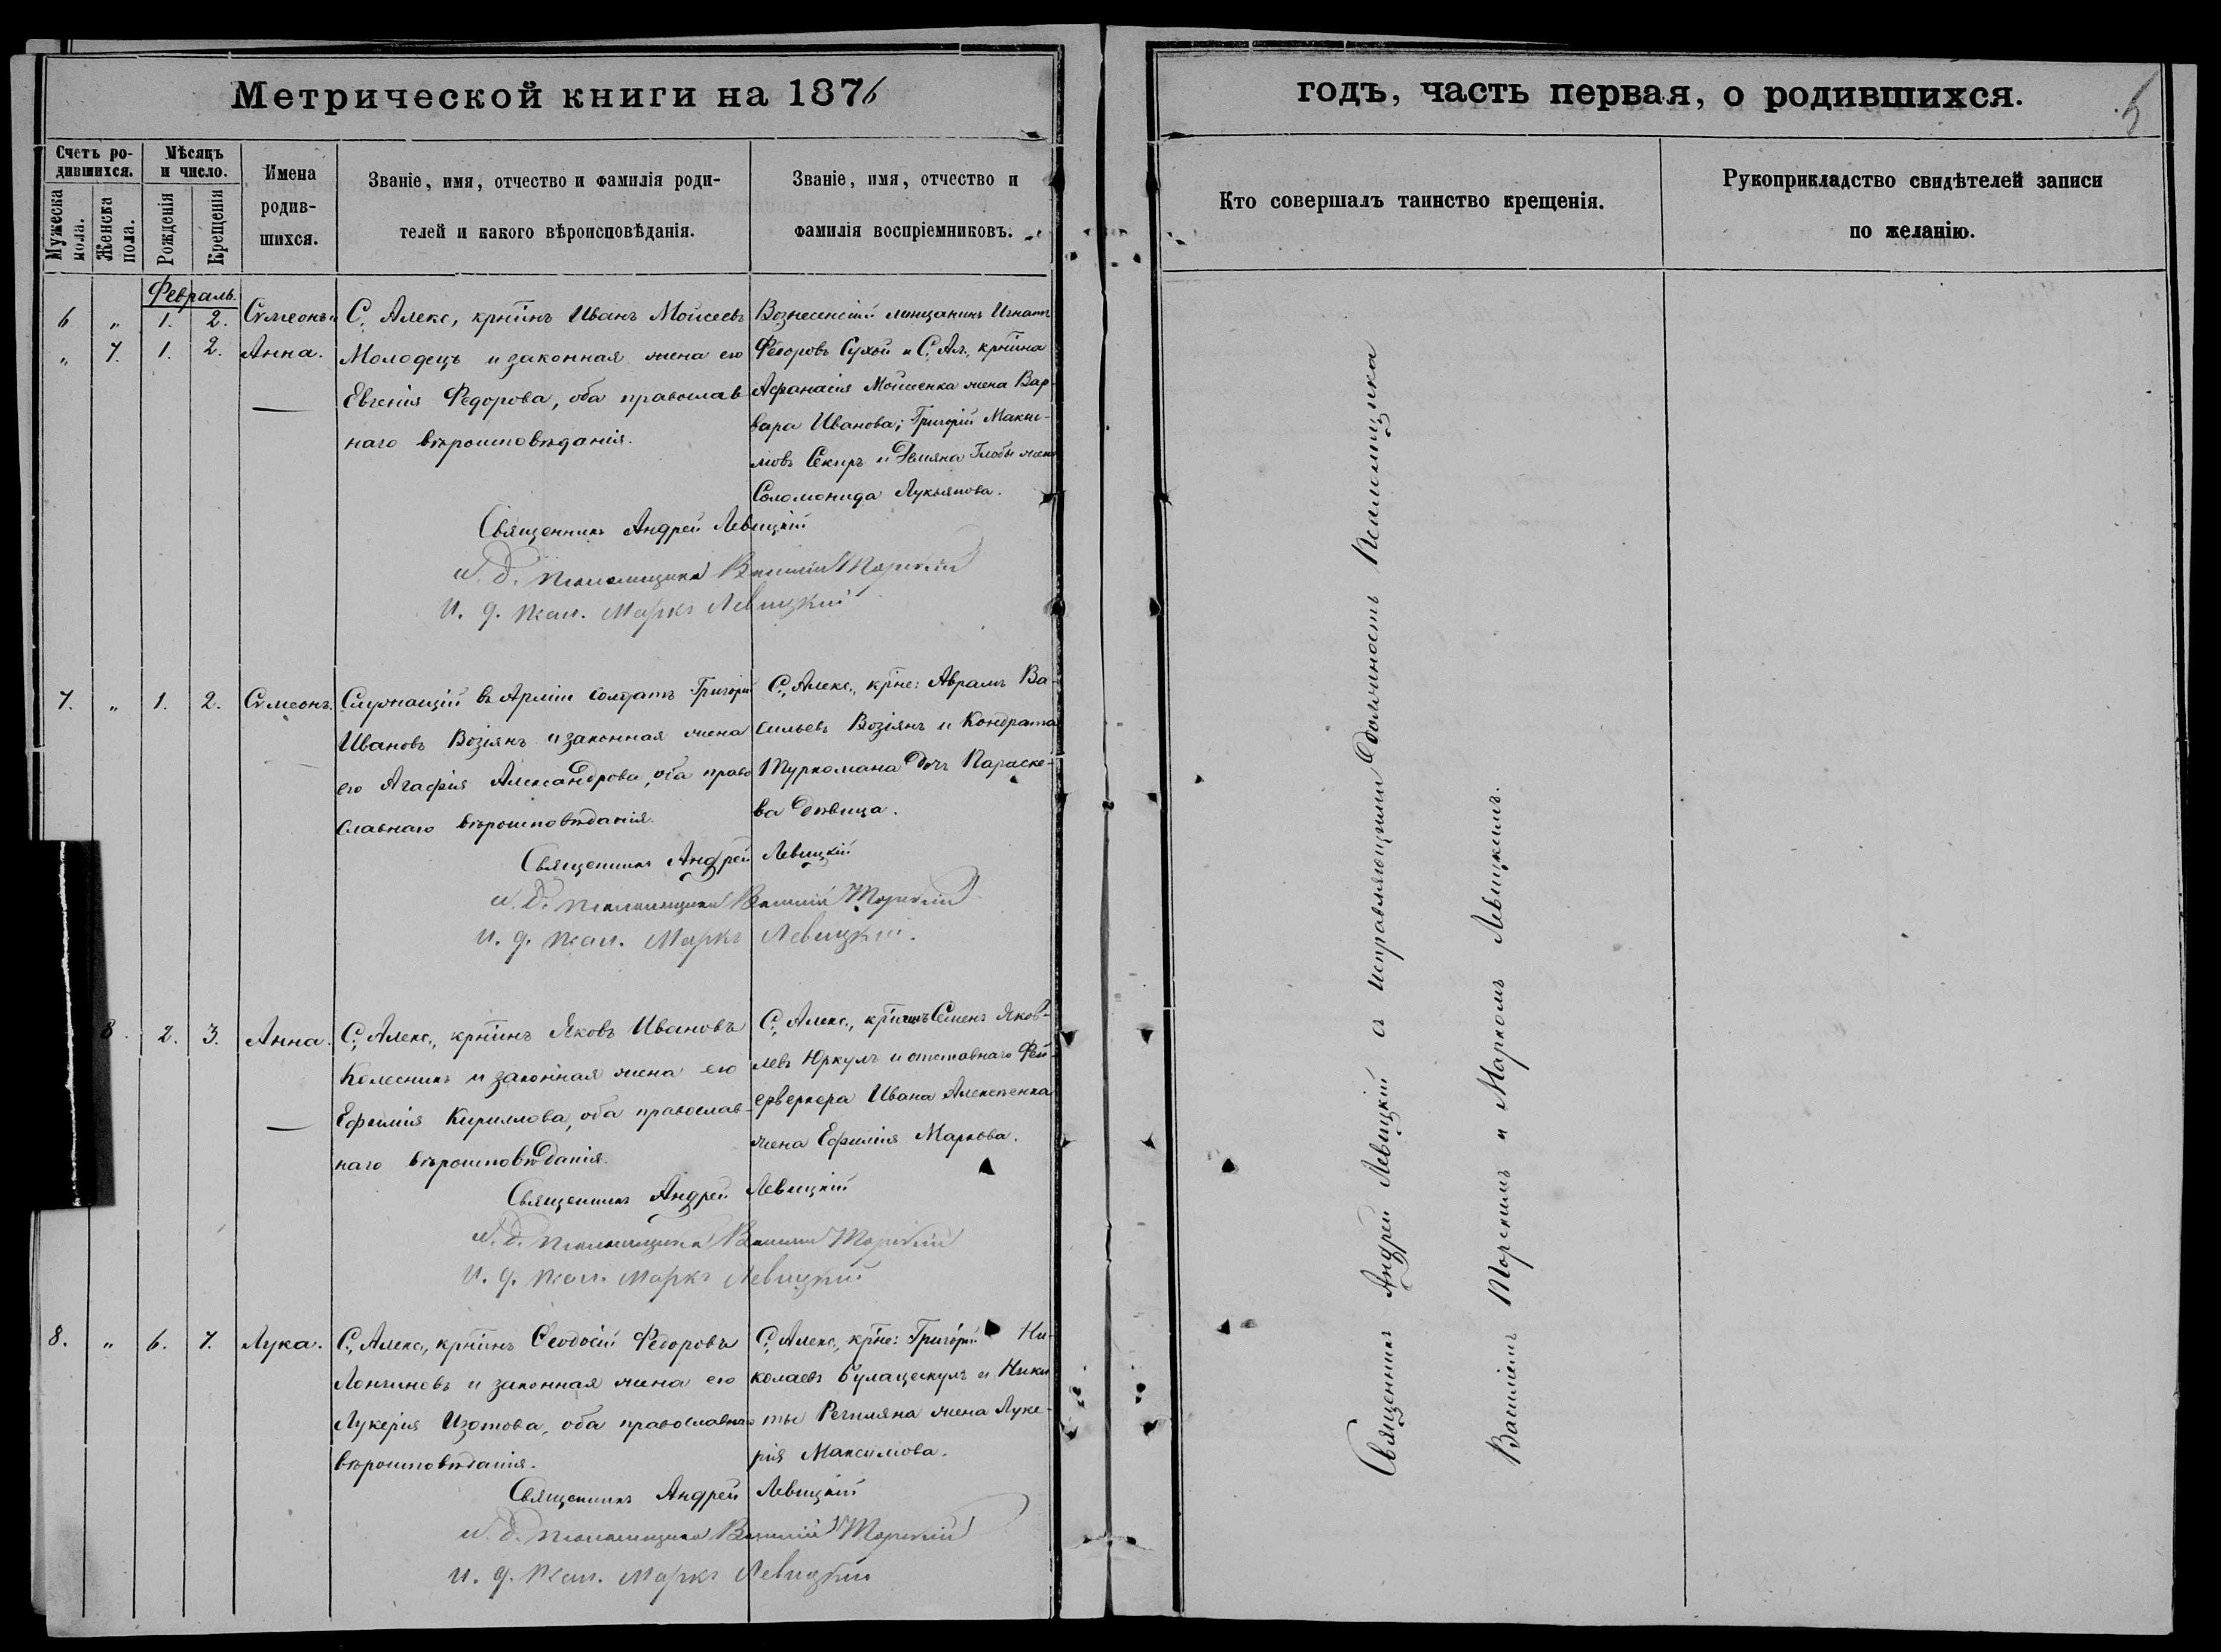 Метрической книги на 1876
годъ, часть первая, о родившихся.
5
Счетъ ро-
дившихся.
Мѣсяцъ
и число.
Мужеска
пола.
Женска
пола.
Рожденія
Крещенія
Имена
родив-
шихся.
Званіе, имя, отчество и фамилія роди-
телей и какого вѣроисповѣданія.
Званіе, имя, отчество и
фамилія воспріемниковъ.
Кто совершалъ таинство крещенія.
Рукоприкладство свидѣтелей записи
по желанію.
Февраль.
6 " 1. 2. Сѵмеонъ и
" 7. 1. 2. Анна.
С. Алекс, крнинъ Иванъ Моисеевъ
Молодецъ и законная жена его
Евгенія Федорова, оба православ
наго вѣроисповѣданія.
Вознесенскій мещанинъ Игнатъ
Федоровъ Сухой и С. Ал., крнина
Афанасія Мойсенка жена Вар-
вара Иванова; Григорій Макси-
мовъ Секиръ и Демяна Глобы жена
Соломонида Лукьянова.
Священникъ Андрей Левицкій
И. д. псаломщика Василій Торскій
И. д. псал. Маркъ Левицкій
7. " 1. 2. Сѵмеонъ.
Служащій въ Арміи солдатъ Григорій
Ивановъ Возіянъ и законная жена
его Агафія Александрова, оба право
славнаго вѣроисповѣданія.
С., Алекс., крне: Аврамъ Ва-
сильевъ Возіянъ и Кондрата
Туркомана дочь Параске-
ва девица.
Священникъ Андрей Левицкій
И. д. псаломщика Василій Торскій
И. д. псал. Маркъ Левицкій.
8. 2. 3. Анна.
С., Алекс., крнинъ Яковъ Ивановъ
Колесникъ и законная жена его
Ефимія Кирилова, оба православ-
наго вѣроисповѣданія.
С., Алекс., крнинъ Семенъ Яков-
левъ Юркулъ и отставнаго Фей-
ерверкера Ивана Алексѣенка
жена Ефимія Маркова.
Священникъ Андрей Левицкій
И. д. псаломщика Василій Торскій
И. д. псал. Маркъ Левицкій
8. " 6. 7. Лука.
С., Алекс., крнинъ Ѳеодосій Федоровъ
Лончиновъ и законная жена его
Лукерія Изотова, оба православнаго
вѣроисповѣданія.
С., Алекс., крне: Григорій Ни-
колаевъ Булацескулъ и Ники
ты Речиляна жена Луке-
рія Максимова.
Священникъ Андрей Левицкій
И. д. псаломщика Василій Торскій
И. д. псал. Маркъ Левицкій
Священникъ Андрей Левицкій съ исправляющими должность псаломщика
Василіемъ Торскимъ и Маркомъ Левицкимъ.